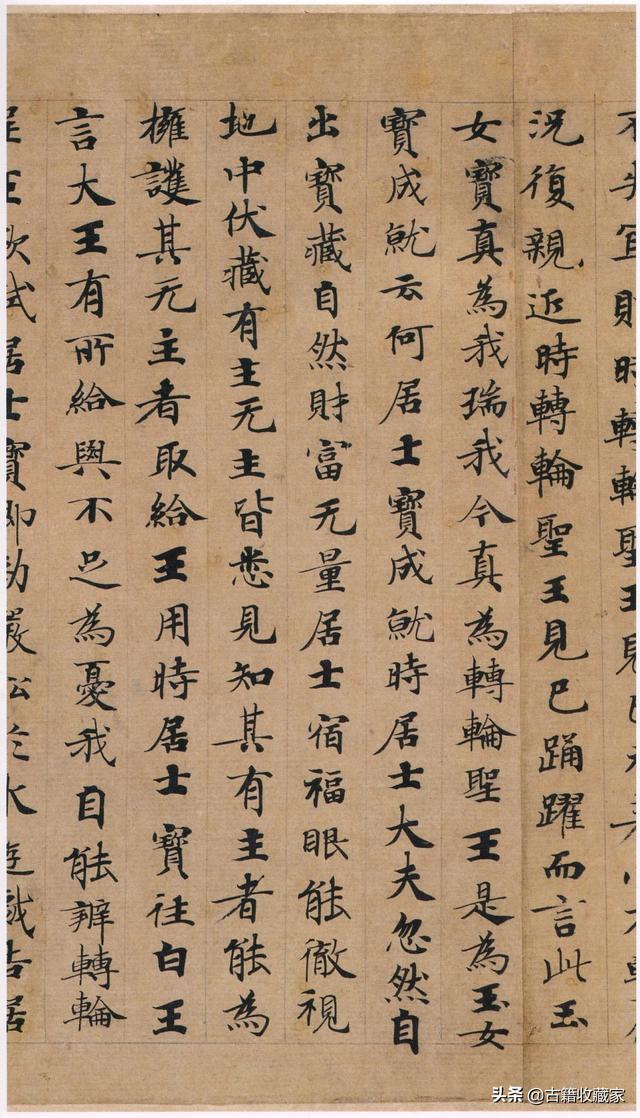 不失宜則時轉輪聖王見
況復親近時轉輪聖王見已踊躍而言此玉
女寶真為我瑞我今真為轉輪聖王是為玉女
寶成就云何居士寶成就時居士大夫忽然自
出寶藏自然財富无量居士宿福眼能徹視
地中伏藏有主无主皆悉見知其有主者能為
擁護其无主者取給王用時居士寶往白王
言大王有所給與不足為憂我自能辦轉輪
聖王欲試居士寶即勅嚴船於水遊戲告居
头条 @古籍收藏家